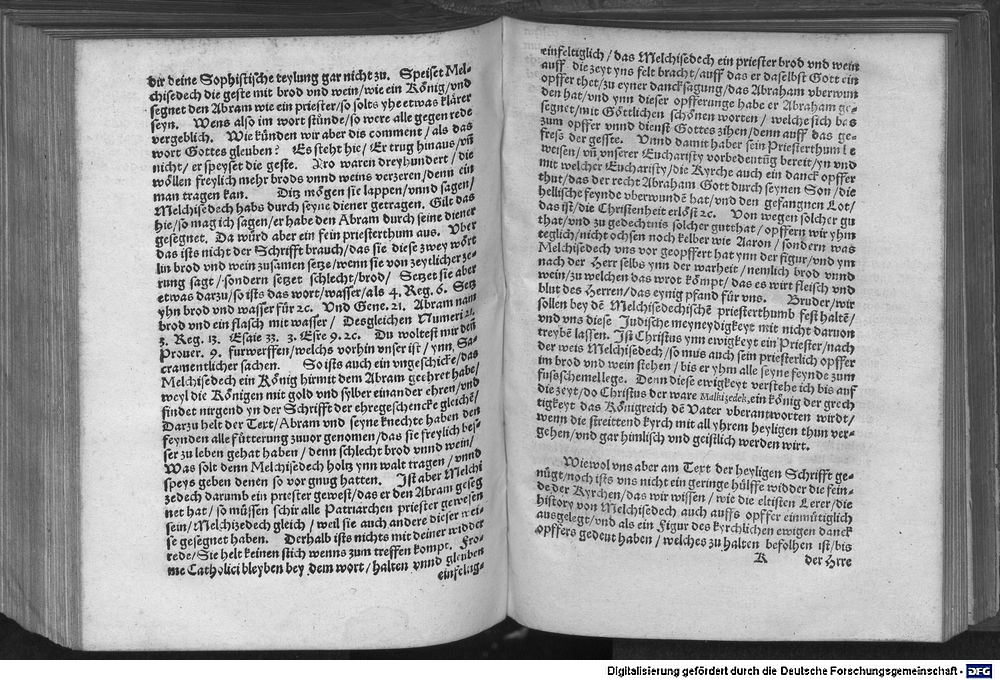 dir deine Sophistische teylung gar nicht zu. Speiset Mel-
chisedech die geste mit brod vnd wein/wie ein König/vnd
segnet den Abram wie ein priester/so solts yhe etwas klärer
seyn. Wens also im wort stünde/so were alle gegen rede
vergeblich. Wie künden wir aber dis comment/als das
wort Gottes gleuben? Es steht hie/Er trug hinaus/vn̄
nicht/er speyset die geste. Nro waren dreyhundert/die
wöllen freylich mehr brods vnnd weins verzeren/denn ein
man tragen kan. Ditz mögen sie lappen/vnnd sagen/
Melchisedech habs durch seyne diener getragen. Gilt das
hie/so mag ich sagen/er habe den Abram durch seine diener
gesegnet. Da würd aber ein fein priesterthum aus. Vber
das ists nicht der Schrifft brauch/das sie diese zwey wört
lin brod vnd wein zusamen setze/wenn sie von zeytlicher ze-
rung sagt/sondern setzet schlecht/brod/ Setzet sie aber
etwas darzu/so ists das wort/wasser/als 4. Reg. 6. Setz
yhn brod vnd wasser für ꝛc. Vnd Gene. 21. Abram nam
brod vnd ein flasch mit wasser/ Desgleichen Numeri 21.
3. Reg. 13. Esaie 33. 3. Esre 9. ꝛc. Du woltest mir den̄
Prouer. 9. furwerffen/welchs vorhin vnser ist/ynn Sa-
cramentlicher sachen. So ists auch ein vngeschicke/das
Melchisedech ein König hirmit dem Abram geehret habe/
weyl die Königen mit gold vnd sylber einander ehren/vnd
findet nirgend yn der Schrifft der ehregeschencke gleichē/
Darzu helt der Text/Abram vnd seyne knechte haben den
feynden alle fütterung zuuor genomen/das sie freylich bes-
ser zu leben gehat haben/denn schlecht brod vnnd wein/
Was solt denn Melchisedech holtz ynn walt tragen/vnnd
speys geben denen so vor gnug hatten. Ist aber Melchi
zedech darumb ein priester gewest/das er den Abram geseg
net hat/so müssen schir alle Patriarchen priester gewesen
sein/Melchizedech gleich/weil sie auch andere dieser wei-
se gesegnet haben. Derhalb ists nichts mit deiner widder
rede/Sie helt keinen stich wenns zum treffen kompt. Fro-
me Catholici bleyben bey dem wort/halten vnnd gleuben
einfeltig-
einfeltiglich/das Melchisedech ein priester brod vnd wein
auff die zeyt yns felt bracht/auff das er daselbst Gott ein
opffer thet/zu eyner dancksagung/das Abraham vberwun
den hat/vnd ynn dieser opfferunge habe er Abraham ge-
segnet/mit Göttlichen schönen worten/welche sich bas
zum opffer vnnd dienst Gottes zihen/denn auff das ge-
fress der gesste. Vnnd damit haber sein Priesterthumb
weisen/vn̄ vnserer Eucharisty vorbedeutūg bereit/yn vnd
mit welcher Eucharisty/die Kyrche auch ein danck opffer
thut/das der recht Abraham Gott durch seynen Son/die
hellische feynde vberwundē hat/vnd den gefangnen Lot/
das ist/die Christenheit erlöst ꝛc. Von wegen solcher gu
that/vnd zu gedechtnis solcher gutthat/opffern wir yhm
teglich/nicht ochsen noch kelber wie Aaron/sondern was
Melchisedech vns vor geopffert hat ynn der figur/vnd yni
nach der Herr selbs ynn der warheit/nemlich brod vnnd
wein/zu welchen das wrot kömpt/das es wirt fleisch vnd
blut des Herren/das eynig pfand für vns. Bruder/wir
sollen bey dē Melchisedechischē priesterthumb fest haltē/
vnd vns diese Judische meyneydigkeyt mit nicht daruon
treybē lassen. Ist Christus ynn ewigkeyt ein Priester/nach
der weis Melchisedech/so mus auch sein priesterlich opffer
im brod vnd wein stehen/bis er yhm alle seyne feynde zum
fusschemellege. Denn diese ewigkeyt verstehe ich bis auf
die zeyt/do Christus der ware Malkizedek,ein könig der grech
tigkeyt das Königreich dē Vater vberantworten wirdt/
wenn die streittend kyrch mit all yhrem heyligen thun ver-
gehen/vnd gar himlisch vnd geistlich werden wirt.
Wiewol vns aber am Text der heyligen Schrifft ge-
nügt/noch ists vns nicht ein geringe hülffe widder die fein-
de der Kyrchen/das wir wissen/wie die eltisten Lerer/die
history von Melchisedech auch auffs opffer einmütiglich
ausgelegt/vnd als ein Figur des kyrchlichen ewigen danck
opffers gedeut haben/welches zu halten befolhen ist/bis
K der Hrre
Digitalisierung gefördert durch die Deutsche Forschungsgemeinschaft - DFG